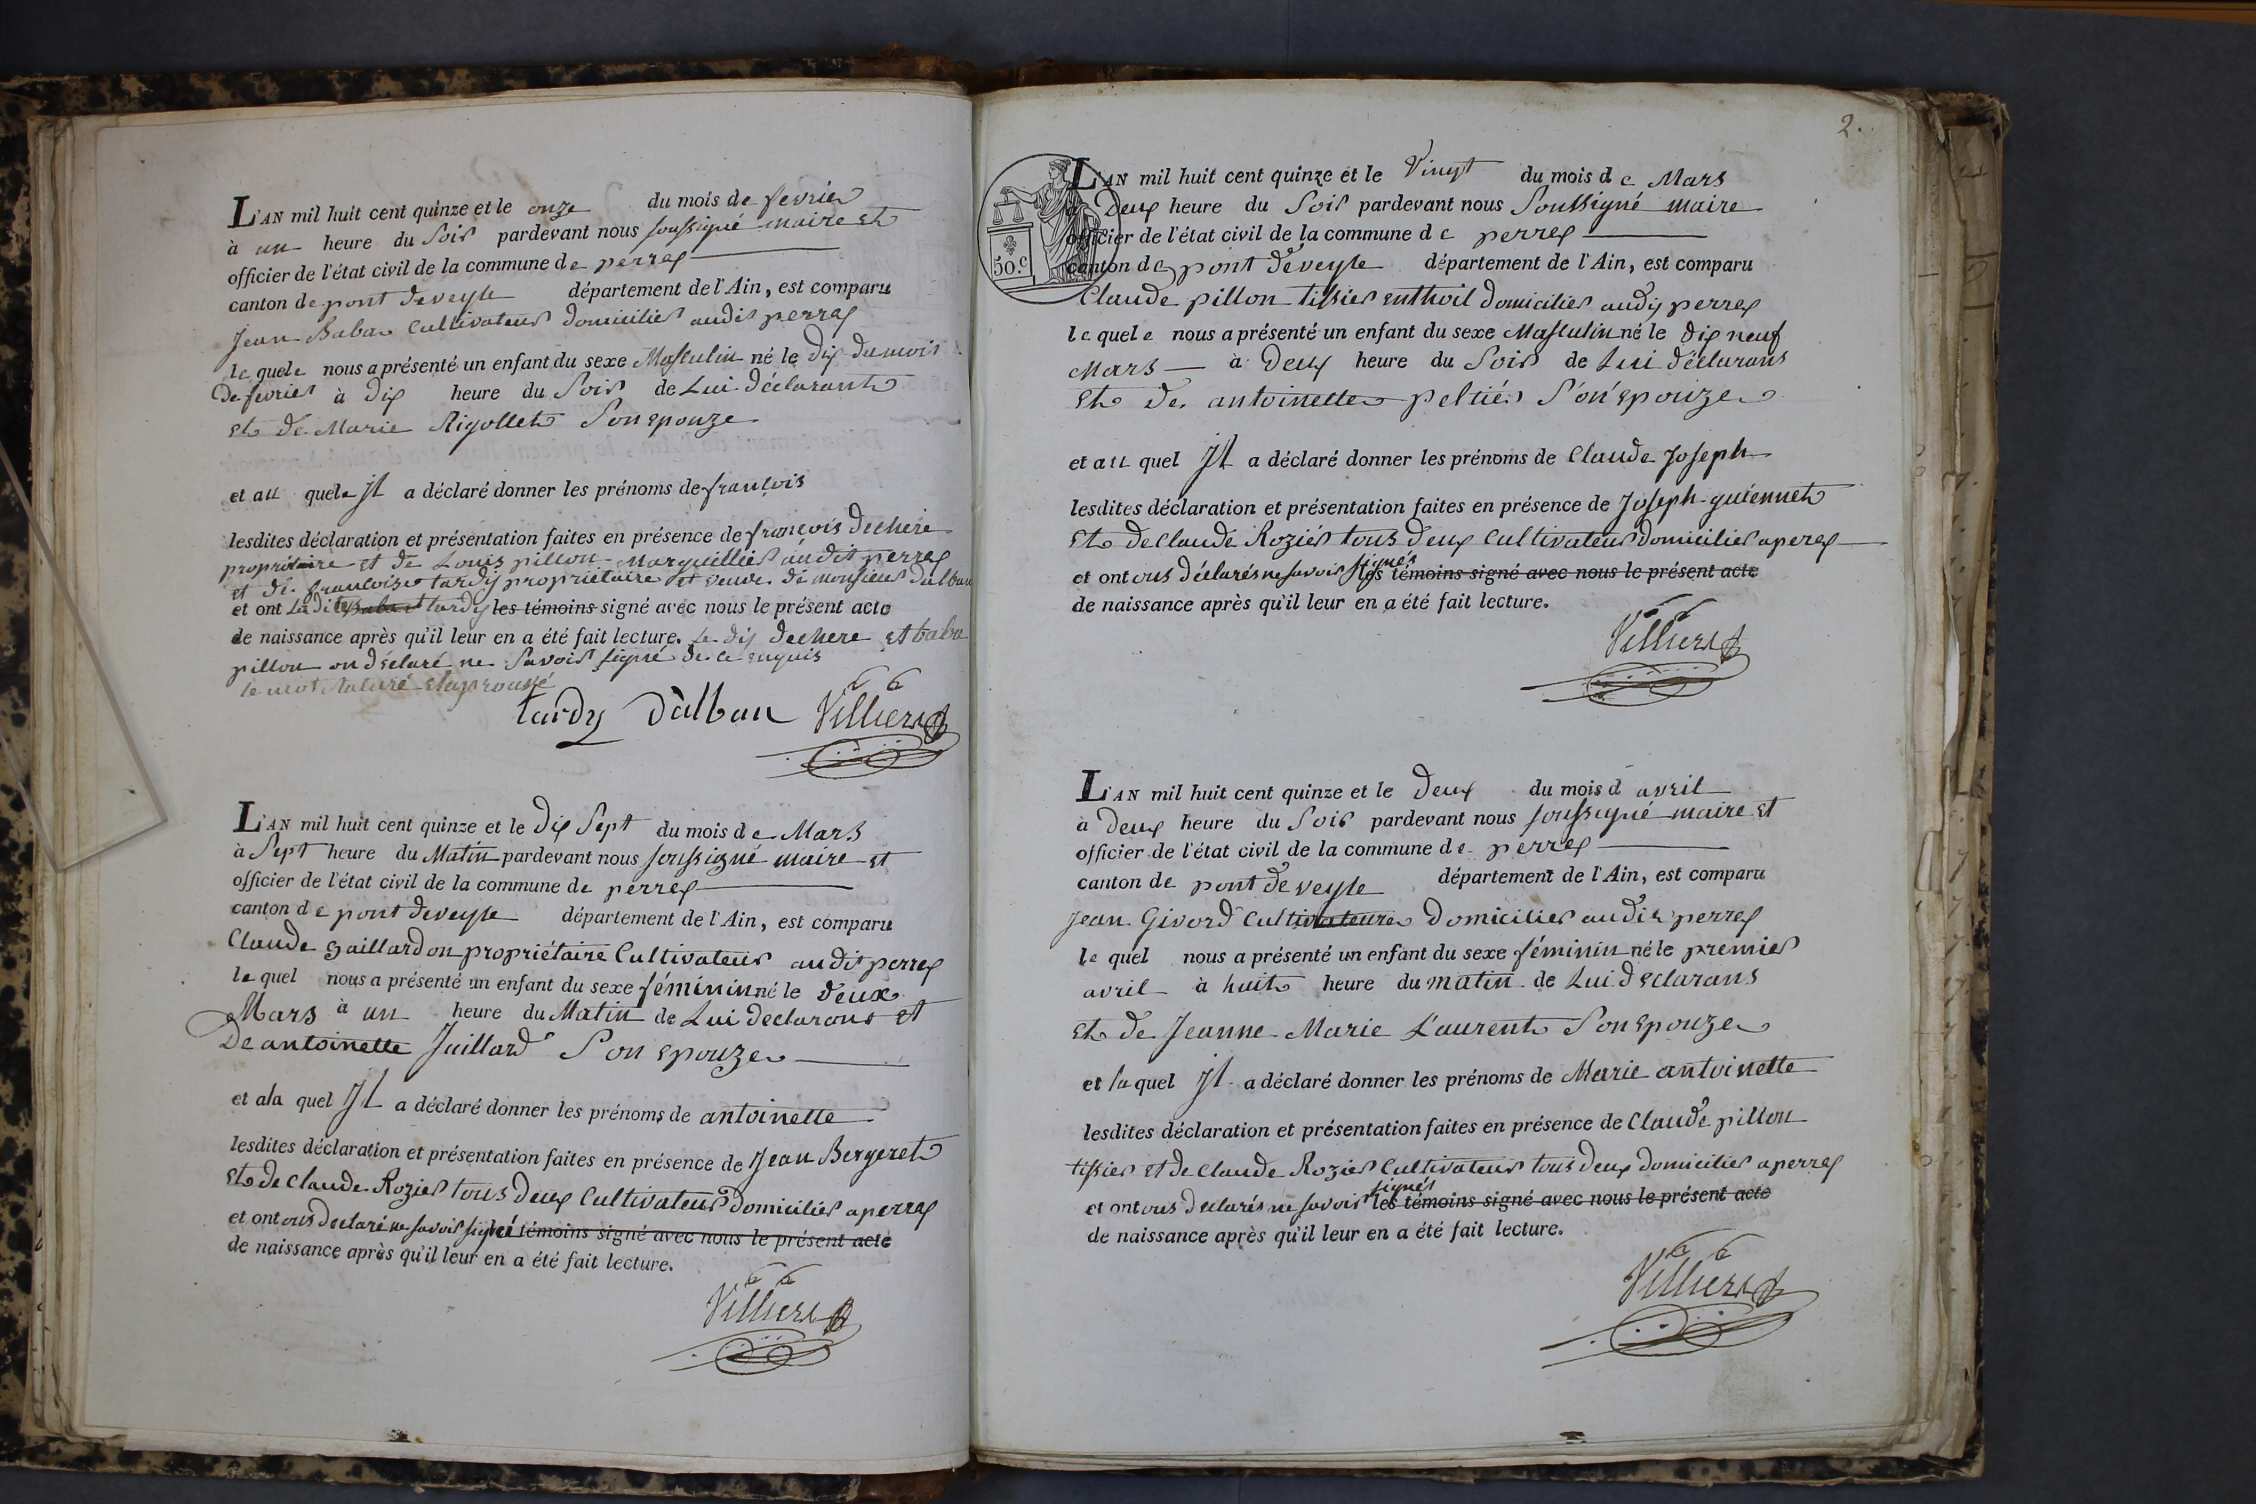 L'AN mil huit cent quinze et le onze du mois de fevrier
à un heure du Soir pardevant nous soussigné maire et
officier de l'état civil de la commune de perrex
canton de pont deveyle département de l'Ain, est comparu
Jean Baba Cultivateur domicilier audit perrex
le quele nous a présenté un enfant du sexe Masculin né le Dix du mois
De fevrier à Dix heure du Soir de Lui Déclarant
et de Marie Rigollet Son epouze
et au quele Jl a déclaré donner les prénoms de françois
lesdites déclaration et présentation faites en présence de françois Dechere
propriétaire et de Louis pillon Marguillier audit perrex
et de francoise tardy propriétaire et veuve de monsieur Dalbau
et ont Ladite Baba et tardy les témoins signé avec nous le présent acte
de naissance après qu'il leur en a été fait lecture. Le dis dechere et baba
pillon on déclaré ne Savoir signé de ce enquis
le mot raturé
tardy Dalbau Villiers
L'AN mil huit cent quinze et le Dix Sept du mois de Mars
à Sept heure du Matin pardevant nous soussigné maire et
officier de l'état civil de la commune de perrex
canton de pont deveyle département de l'Ain, est comparu
Claude Gaillardon propriétaire Cultivateur audit perrex
le quel nous a présenté un enfant du sexe féminin né le Deux
Mars à un heure du Matin de Lui declarant et
De antoinette Juillard Son epouze
et ala quel Jl a déclaré donner les prénoms de antoinette
lesdites déclaration et présentation faites en présence de Jean Bergeret
et de Claude Rozier tous Deux Cultivateur Domicilier a perrex
et ont ous declaré ne savoir signé les témoins signé avec nous le présent acte
de naissance après qu'il leur en a été fait lecture.
Villiers
2.
50.c
L'AN mil huit cent quinze et le Vingt du mois de Mars
à Deux heure du Soir pardevant nous Soussigné maire
officier de l'état civil de la commune de perrex
canton de pont deveyle département de l'Ain, est comparu
Claude pillon tissier enthoil domicilier audij perrex
le quele nous a présenté un enfant du sexe Masculin né le Dix neuf
Mars à Deux heure du Soir de Lui Déclarans
et De antoinette peltier Son epouze
et au quel Jl a déclaré donner les prénoms de Claude Joseph
lesdites déclaration et présentation faites en présence de Joseph guiennet
et de Claude Rozier tous Deux Cultivateur Domicilier a perex
et ont ous déclarés ne savoir signés les témoins signé avec nous le présent acte
de naissance après qu'il leur en a été fait lecture.
Villiers
L'AN mil huit cent quinze et le Deux du mois d avril
à Deux heure du Soir pardevant nous soussigné maire et
officier de l'état civil de la commune de perrex
canton de pont de veyle département de l'Ain, est comparu
Jean Givord Cultivateure Domicilier audit perrex
le quel nous a présenté un enfant du sexe féminin né le premier
avril à huit heure du matin de Lui Declarans
et de Jeanne Marie Laurent Son epouze
et la quel Jl a déclaré donner les prénoms de Marie antoinette
lesdites déclaration et présentation faites en présence de Claude pillon
tissier et de Claude Rozier Cultivateur tous Deux domicilier a perrex
et ont ous declarés ne savoir signés les témoins signé avec nous le présent acte
de naissance après qu'il leur en a été fait lecture.
Villiers